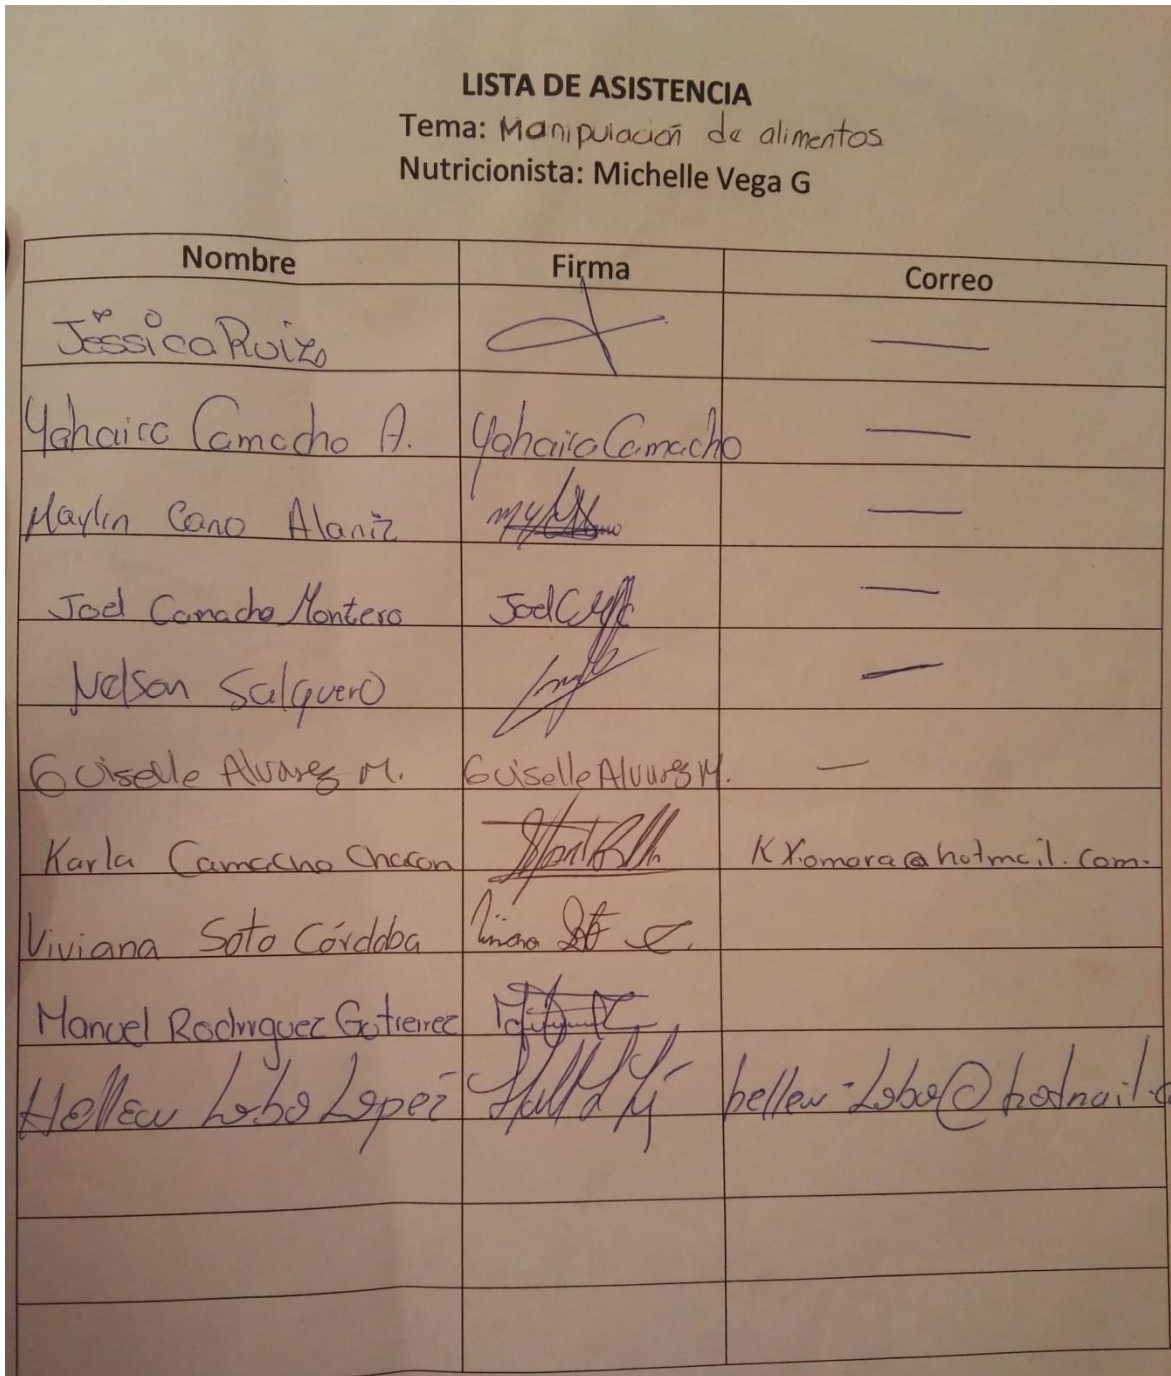 LISTA DE ASISTENCIA
Tema: Manipulación de alimentos
Nutricionista: Michelle Vega G
Nombre Firma Correo
Jessica Ruiz
Yahaira Camacho A. Yahaira Camacho
Maylin Cano Alaniz
Joel Camacho Montero Joel
Nelson Salguero
Guiselle Alvarez M. Guiselle Alvarez M.
Karla Camacho Chacon KXiomara@hotmail.com.
Viviana Soto Córdoba
Manuel Rodriguez Gutierrez
Hellen Lobo Lopez hellen-Lobo@hotmail.c